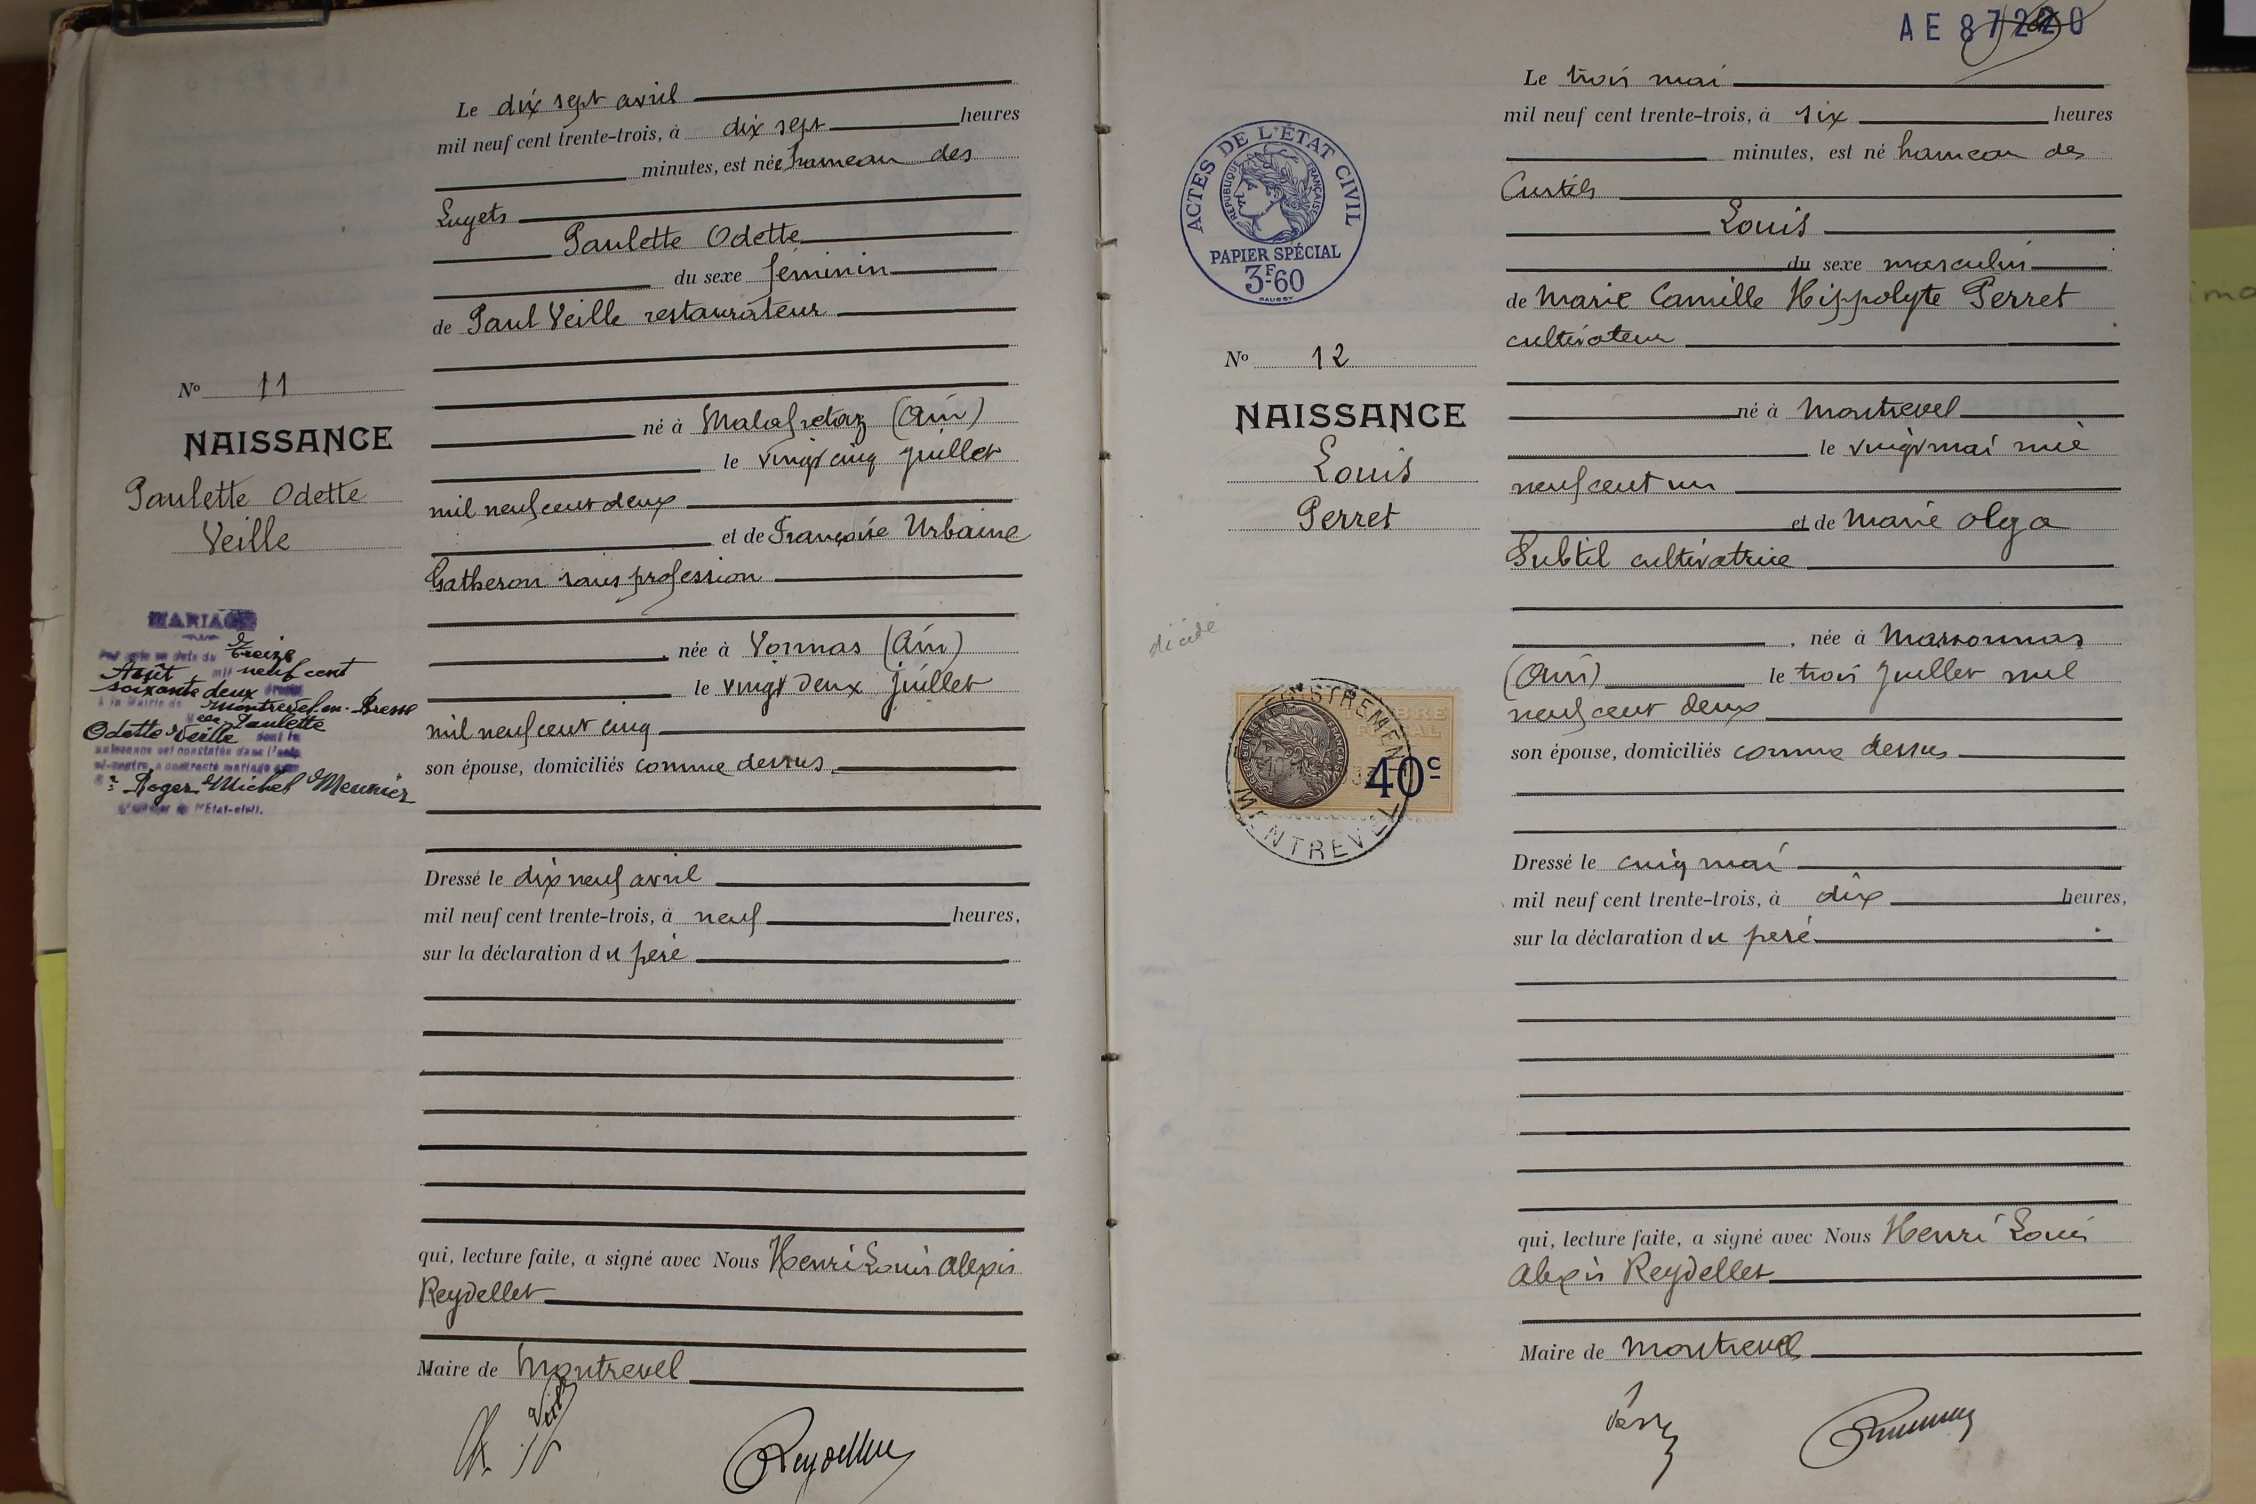 Le dix sept avril
mil neuf cent trente-trois, à dix sept heures
minutes, est née hameau des
Luyets
Paulette Odette
du sexe féminin
de Paul Veille restaurateur
né à Malafretaz (Ain)
le vingt cinq juillet
mil neuf cent deux
et de Françoise Urbaine
Gatheron sans profession
, née à Vonnas (Ain)
le vingt deux juillet
mil neuf cent cinq
son épouse, domiciliés comme dessus
Dressé le dix neuf avril
mil neuf cent trente-trois, à neuf heures,
sur la déclaration du père
qui, lecture faite, a signé avec Nous Henri Louis Alexis
Reydellet
Maire de Montrevel
Reydellet
No 11
NAISSANCE
Paulette Odette
Veille
MARIAGE
Par acte en date du treize
Août mil neuf cent
soixante deux
à la Mairie de Montrevel-en-Bresse
Melle Paulette
Odette Veille dont la
naissance est constatée dans l'acte
ci-contre, a contracté mariage avec
Mr Roger Michel Meunier
L'officier de l'Etat-civil.
AE 87220
Le trois mai
mil neuf cent trente-trois, à six heures
minutes, est né hameau des
Curtils
Louis
du sexe masculin
de Marie Camille Hippolyte Perret
cultivateur
né à Montrevel
le vingt mai mil
neuf cent un
et de Marie Olga
Subtil cultivatrice
, née à Marsonnas
(Ain) le trois juillet mil
neuf cent deux
son épouse, domiciliés comme dessus
Dressé le cinq mai
mil neuf cent trente-trois, à dix heures,
sur la déclaration du père
qui, lecture faite, a signé avec Nous Henri Louis
Alexis Reydellet
Maire de Montrevel
ACTES DE L'ÉTAT CIVIL
RÉPUBLIQUE FRANÇAISE
PAPIER SPÉCIAL
3F.60
No 12
NAISSANCE
Louis
Perret
décédé
ENREGISTREMENT
TIMBRE
FISCAL
40c
MONTREVEL